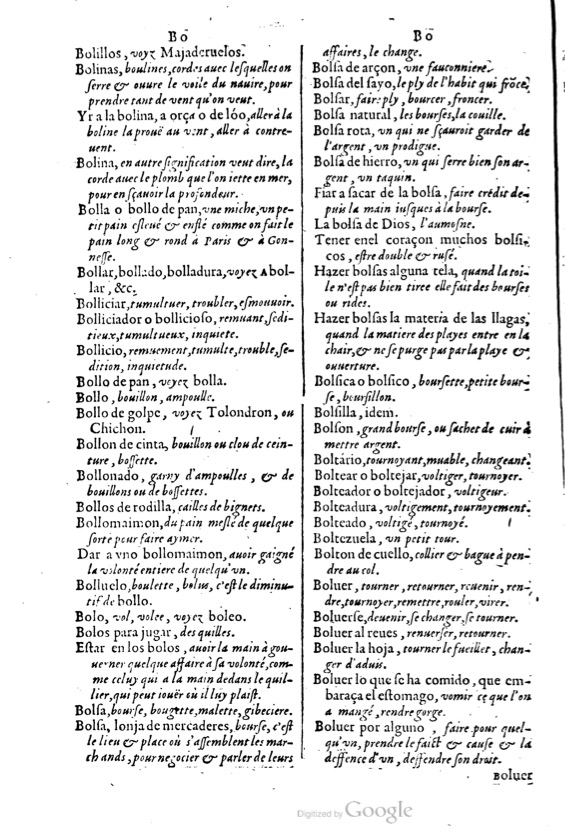 Bo
Bolillos, voyez Majaderuelos.
Bolinas, boulines, cordes auec lesquelles on
serre & ouure le voile du nauire, pour
prendre tant de vent qu'on veut.
Yr a la bolina, a orça o de lóo, aller à la
boline la prouë au vent, aller à contre-
uent.
Bolina, en autre signification veut dire, la
corde auec le plomb que l'on iette en mer,
pour en sçauoir la profondeur.
Bolla o bollo de pan, vne miche, vn pe-
tit pain esleué & enflé comme on fait le
pain long & rond à Paris & à Gon-
nesse.
Bollar, bollado, bolladura, voyez Abol-
lar, &c.
Bolliciar, tumultuer, troubler, esmouuoir.
Bolliciador o bollicioso, remuant, sedi-
tieux, tumultueux, inquiete.
Bollicio, remuement, tumulte, trouble, se-
dition, inquietude.
Bollo de pan, voyez bolla.
Bollo, bouillon, ampoulle.
Bollo de golpe, voyez Tolondron, ou
Chichon.
Bollon de cinta, bouillon ou clou de cein-
ture, bossette.
Bollonado, garny d'ampoulles, & de
bouillons ou de bossettes.
Bollos de rodilla, cailles de bignets.
Bollomaimon, du pain meslé de quelque
sorte pour faire aymer.
Dar a vno bollomaimon, auoir gaigné
la volonté entiere de quelqu'vn.
Bolluelo, boulette, bolus, c'est le diminu-
tif de bollo.
Bolo, vol, volee, voyez boleo.
Bolos para jugar, des quilles.
Estar en los bolos, auoir la main à gou-
uerner quelque affaire à sa volonté, com-
me celuy qui a la main dedans le quil-
lier, qui peut iouër où il luy plaist.
Bolsa, bourse, bougette, malette, gibeciere.
Bolsa, lonja de mercaderes, bourse, c'est
le lieu & place où s'assemblent les mar-
chands, pour negocier & parler de leurs
Bo
affaires, le change.
Bolsa de arçon, vne fauconniere.
Bolsa del sayo, le ply de l'habit qui frôce.
Bolsar, faire ply, bourcer, froncer.
Bolsa natural, les bourses, la couille.
Bolsa rota, vn qui ne sçauroit garder de
l'argent, vn prodigue.
Bolsa de hierro, vn qui serre bien son ar-
gent, vn taquin.
Fiar a sacar de la bolsa, faire crédit de-
puis la main iusques à la bourse.
La bolsa de Dios, l'aumosne.
Tener en el coraçon muchos bolsi-
cos, estre double & rusé.
Hazer bolsas alguna tela, quand la toi-
le n'est pas bien tiree elle fait des bourses
ou rides.
Hazer bolsas la materia de las llagas,
quand la matiere des playes entre en la
chair, & ne se purge pas par la playe &
ouuerture.
Bolsica o bolsico, boursette, petite bour-
se, boursillon.
Bolsilla, idem.
Bolson, grand bourse, ou sachet de cuir à
mettre argent.
Boltario, tournoyant, muable, changeant.
Boltear o boltejar, voltiger, tournoyer.
Bolteador o boltejador, voltigeur.
Bolteadura, voltigement, tournoyement.
Bolteado, voltigé, tournoyé.
Boltezuela, vn petit tour.
Bolton de cuello, collier & bague à pen-
dre au col.
Boluer, tourner, retourner, reuenir, ren-
dre, tournoyer, remettre, rouler, virer.
Boluerse, deuenir, se changer, se tourner.
Boluer al reues, renuerser, retourner.
Boluer la hoja, tourner le fueillet, chan-
ger d'aduis.
Boluer lo que se ha comido, que em-
baraça el estomago, vomir ce que l'on
a mangé, rendre gorge.
Boluer por alguno, faire pour quel-
qu'vn, prendre le faict & cause & la
deffence d'vn, deffendre son droit.
Boluer
Digitized by Google